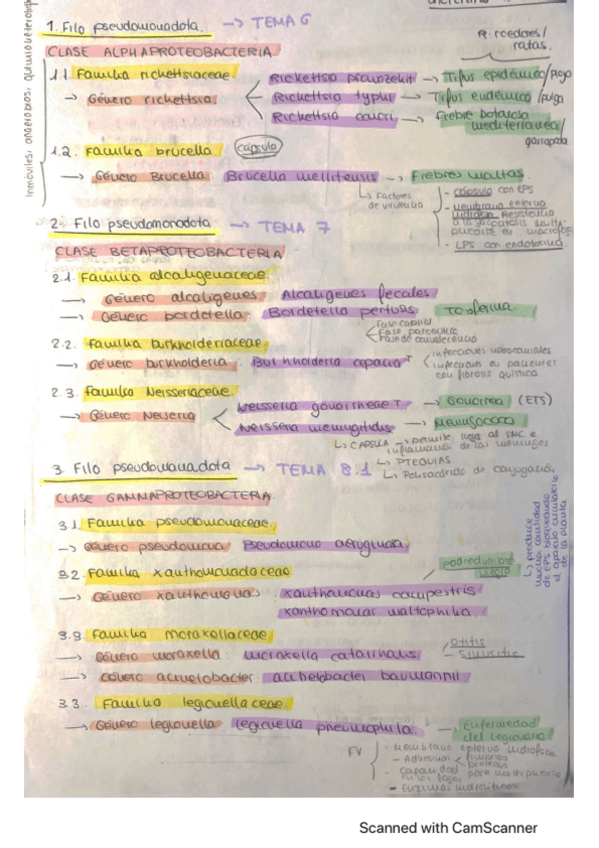 1. Filo pseudomonadota. → TEMA 6
R: roedores/ratas.
CLASE ALPHAPROTEOBACTERIA
Inmóviles, anaerobios,
1.1. Familia rickettsiaceae.
→ Género rickettsia
Rickettsia prowazekii → Tifus epidémico/piojo
Rickettsia typhi → Tifus endémico/pulga
Rickettsia conori → Fiebre botonosa mediterranea/garrapata
1.2. Familia brucella. cápsula
→ Género Brucella. Brucella mellitensis → Fiebres maltas.
↳ Factores de virulencia
- cápsula con EPS
- membrana externa
- LPS con endotoxina
2. Filo pseudomonadota → TEMA 7
CLASE BETAPROTEOBACTERIA
2.1. Familia alcaligenaceae.
→ Género alcaligenes Alcaligenes fecales
→ Género bordetella. Bordetella pertusis. Tosferina
Fase catarral
Fase paroxística
Fase de convalecencia
2.2. Familia burkholderiaceae
→ Género burkholderia. Burkholderia cepacia T
infecciones nosocomiales
infecciones en pacientes con fibrosis quística
2.3. Familia Neisseriaceae.
→ Género Neisseria
Neisseria gonorrheae T → Gonorrea (ETS)
Neisseria meningitidis → Meningococo
↳ CAPSULA → permite llega al SNC e inflamación de las meninges
↳ PTEQUIAS
↳ Polisacárido de conjugación
3. Filo pseudomonadota → TEMA 8.1
CLASE GAMMAPROTEOBACTERIA
3.1. Familia pseudomonaceae.
→ Género pseudomona Pseudomona aeruginosa.
3.2. Familia xanthomonadaceae
podredumbre negra
→ Género xanthomonas: xanthomonas campestris
xanthomonas maltophilia.
↳ produce mucha cantidad de EPS bloqueando el aparato circulatorio de la planta
3.3. Familia moraxellaceae
→ Género moraxella: moraxella catarrhalis
- otitis
- sinusitis
→ Género acinetobacter: acinetobacter baumannii
3.3. Familia legionellaceae.
→ Género legionella legionella pneumophila. → Enfermedad del legionario
FV
- Membrana externa hidrofoba
- Adhesinas fimbrias proteinas
- Capacidad para multiplicarse
- Enzimas hidrolíticas
Scanned with CamScanner